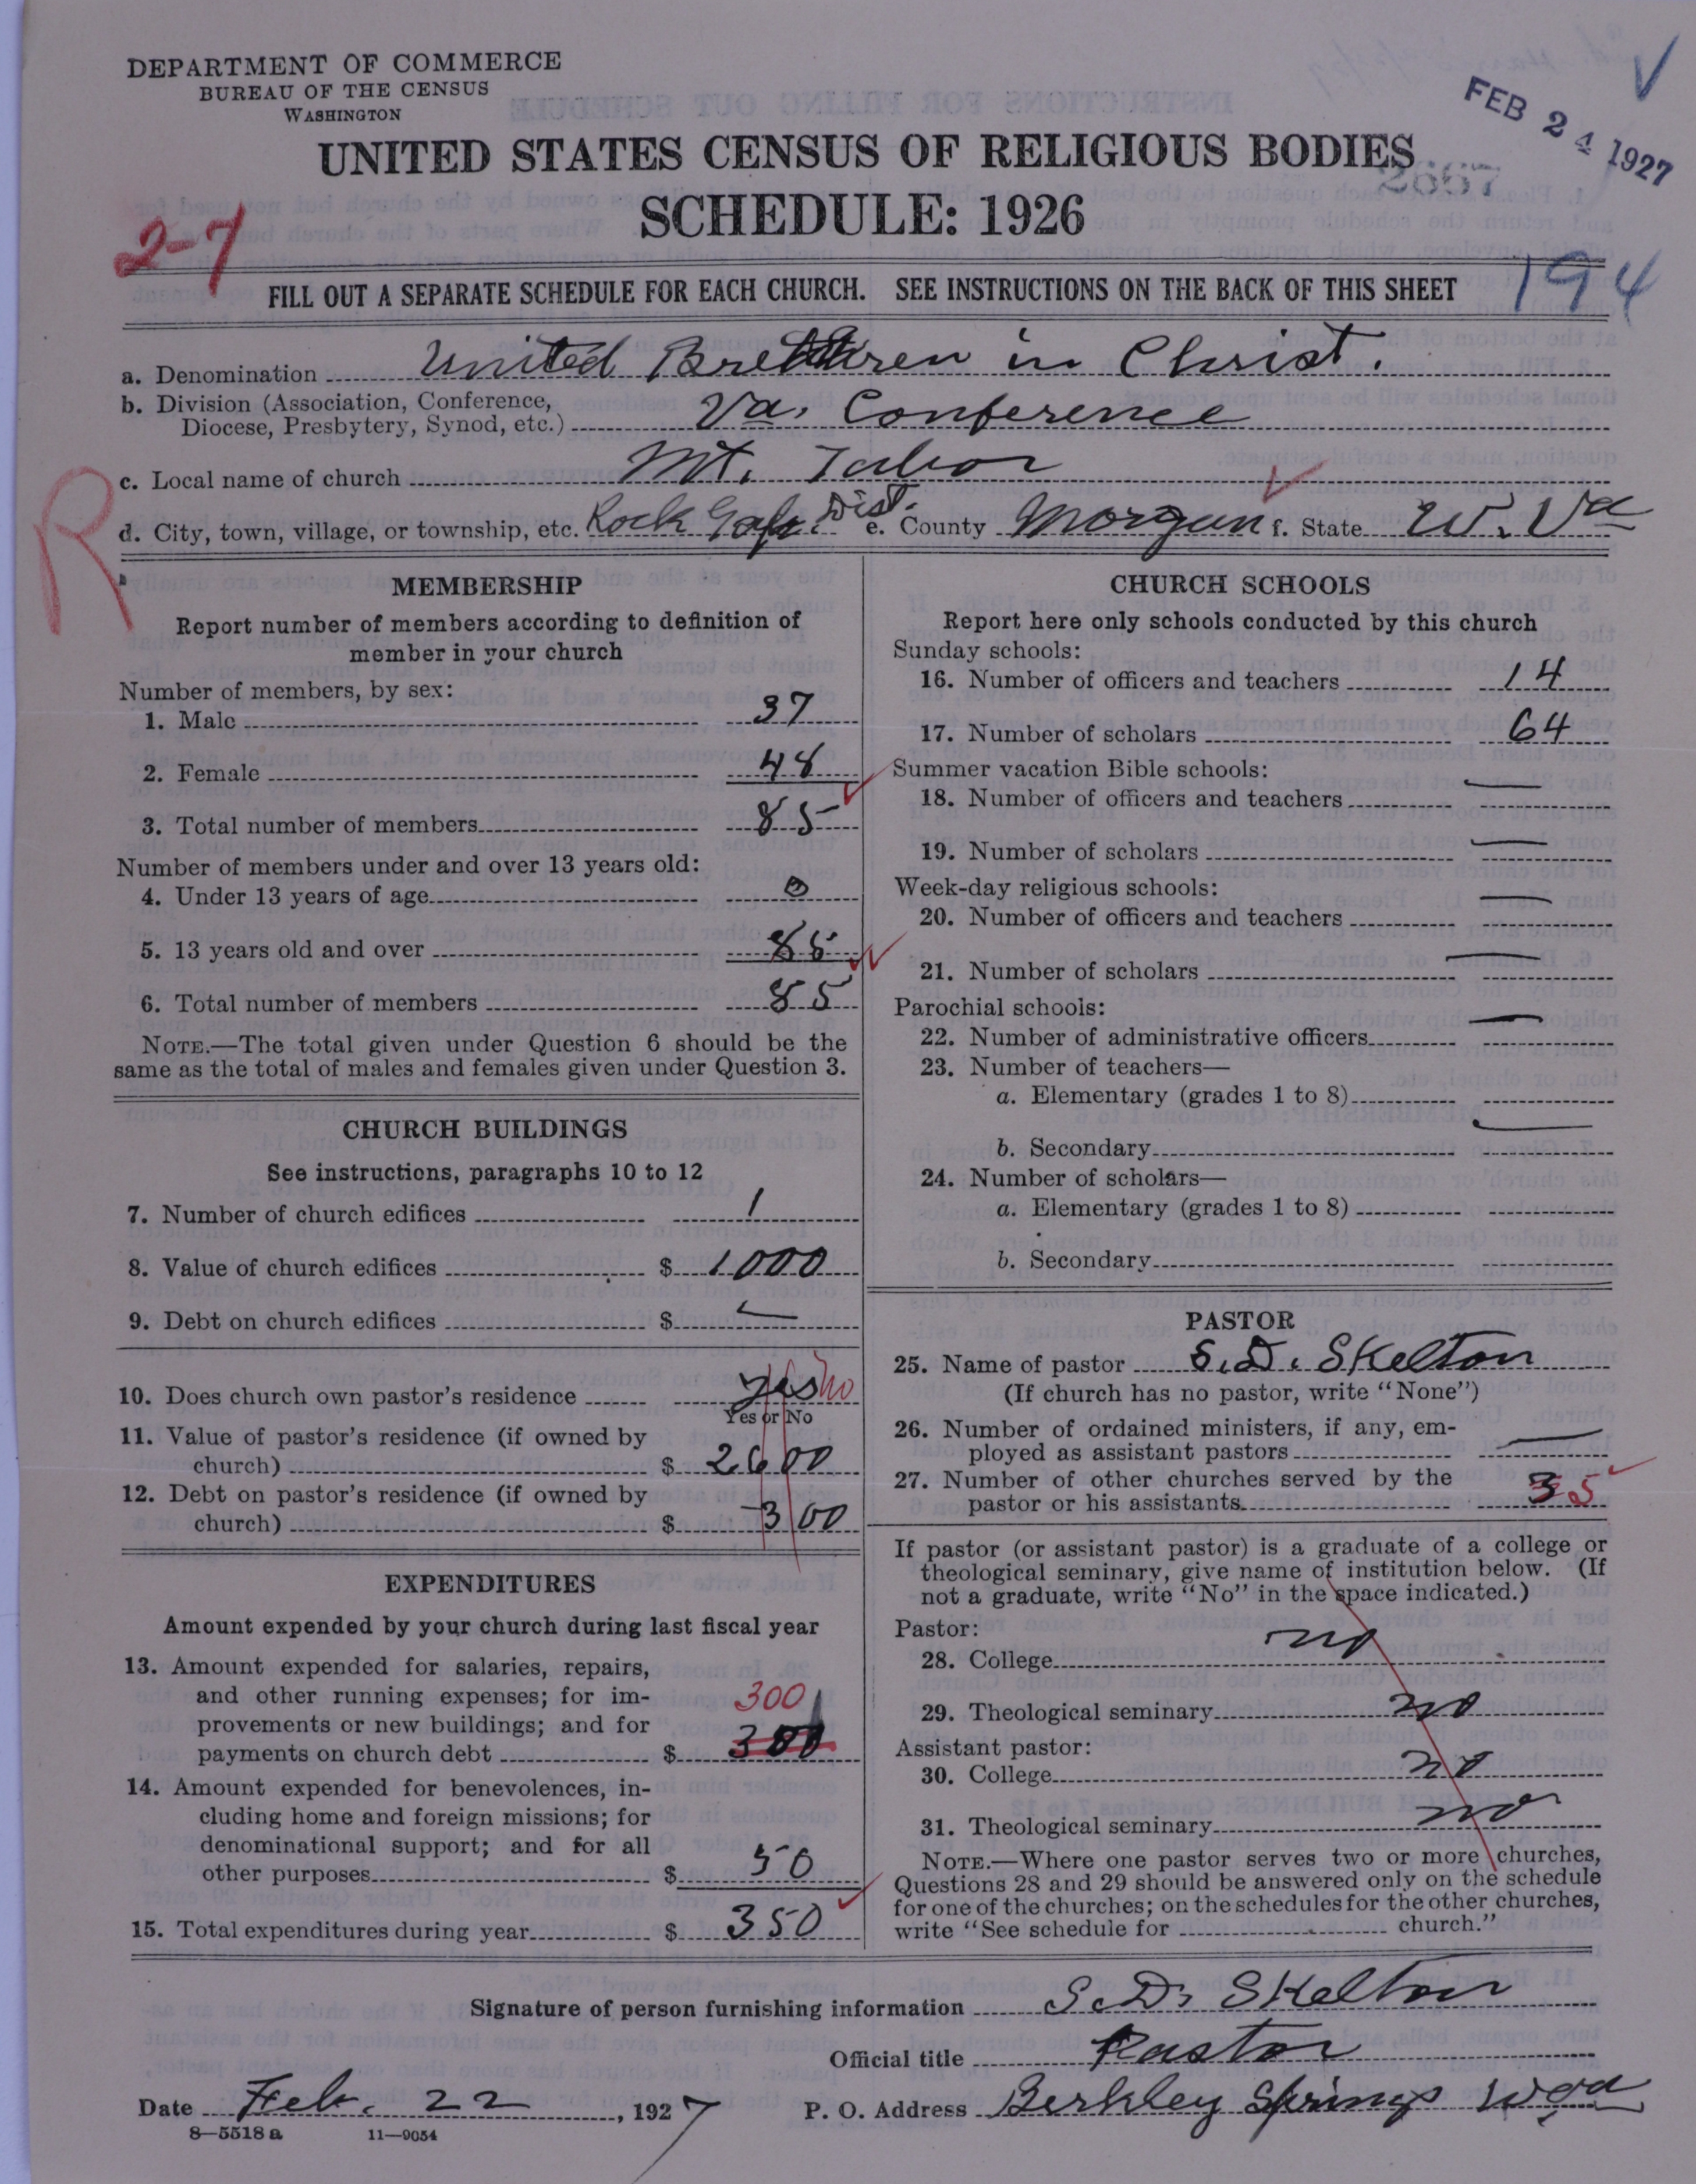 DEPARTMENT OF COMMERCE
BUREAU OF THE CENSUS
WASHINGTON
FEB 24 1927
UNITED STATES CENSUS OF RELIGIOUS BODIES
2667
SCHEDULE: 1926
2-7
FILL OUT A SEPARATE SCHEDULE FOR EACH CHURCH. SEE INSTRUCTIONS ON THE BACK OF THIS SHEET
194
a. Denomination United Brethren in Christ.
b. Division (Association, Conference, Diocese, Presbytery, Synod, etc.) Va. Conference
c. Local name of church Mt. Tabor
d. City, town, village, or township, etc. Rock Gap. Dist. e. County Morgan f. State W. Va
R
MEMBERSHIP
Report number of members according to definition of
member in your church
Number of members, by sex:
1. Male 37
2. Female 48
3. Total number of members 85
Number of members under and over 13 years old:
4. Under 13 years of age 0
5. 13 years old and over 85
6. Total number of members 85
NOTE.—The total given under Question 6 should be the
same as the total of males and females given under Question 3.
CHURCH BUILDINGS
See instructions, paragraphs 10 to 12
7. Number of church edifices 1
8. Value of church edifices $ 1000
9. Debt on church edifices $ —
10. Does church own pastor's residence yes no
Yes or No
11. Value of pastor's residence (if owned by
church) $ 2600
12. Debt on pastor's residence (if owned by
church) $ 300
EXPENDITURES
Amount expended by your church during last fiscal year
13. Amount expended for salaries, repairs,
and other running expenses; for im-
provements or new buildings; and for
payments on church debt $ 300 300
14. Amount expended for benevolences, in-
cluding home and foreign missions; for
denominational support; and for all
other purposes $ 50
15. Total expenditures during year $ 350
CHURCH SCHOOLS
Report here only schools conducted by this church
Sunday schools:
16. Number of officers and teachers 14
17. Number of scholars 64
Summer vacation Bible schools:
18. Number of officers and teachers —
19. Number of scholars —
Week-day religious schools:
20. Number of officers and teachers —
21. Number of scholars —
Parochial schools:
22. Number of administrative officers —
23. Number of teachers—
a. Elementary (grades 1 to 8)
b. Secondary —
24. Number of scholars—
a. Elementary (grades 1 to 8)
b. Secondary
PASTOR
25. Name of pastor S. D. Skelton
(If church has no pastor, write "None")
26. Number of ordained ministers, if any, em-
ployed as assistant pastors —
27. Number of other churches served by the
pastor or his assistants 3 5
If pastor (or assistant pastor) is a graduate of a college or
theological seminary, give name of institution below. (If
not a graduate, write "No" in the space indicated.)
Pastor:
28. College no
29. Theological seminary no
Assistant pastor:
30. College no
31. Theological seminary no
NOTE.—Where one pastor serves two or more churches,
Questions 28 and 29 should be answered only on the schedule
for one of the churches; on the schedules for the other churches,
write "See schedule for church."
Signature of person furnishing information S. D. Skelton
Official title Pastor
Date Feb. 22, 1927 P. O. Address Berkley Springs W va
8—5518 a 11—9054